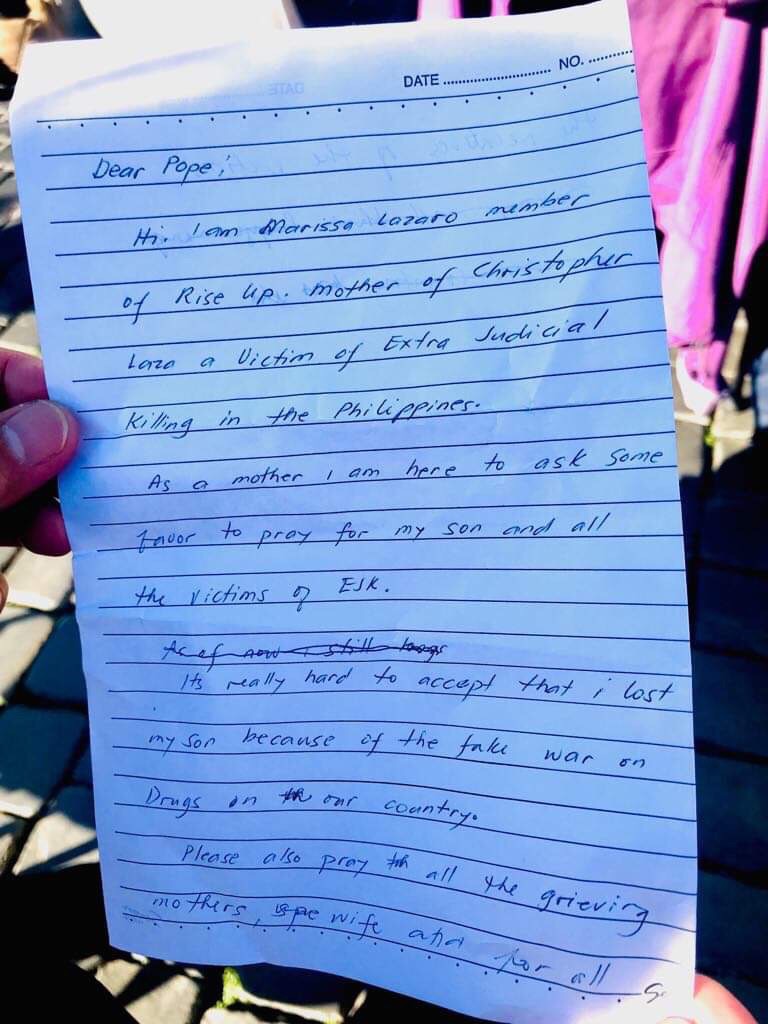 DATE ............................ NO. ...........
Dear Pope;
Hi. I am Marissa Lazaro member
of Rise Up. mother of Christopher
Laza a Victim of Extra Judicial
Killing in the Philippines.
As a mother I am here to ask some
favor to pray for my son and all
the victims of EJK.
As of now i still
Its really hard to accept that i lost
my son because of the fake war on
Drugs on our country.
Please also pray all the grieving
mothers, wife and for all